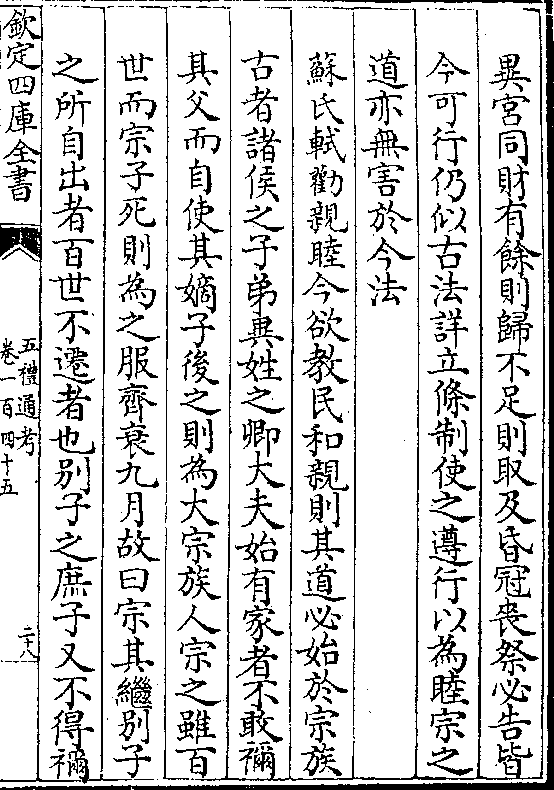 異宮同財有餘則歸不足則取及昏冠喪祭必告皆
今可行仍似古法詳立條制使之遵行以為睦宗之
道亦無害於今法
蘇氏軾勸親睦今欲教民和親則其道必始於宗族
古者諸侯之子弟異姓之卿大夫始有家者不敢禰
其父而自使其嫡子後之則為大宗族人宗之雖百
世而宗子死則為之服齊衰九月故曰宗其繼別子
之所自出者百世不遷者也别子之庶子又不得禰
欽定四庫全書
五禮通考
卷一百四十五
二十八